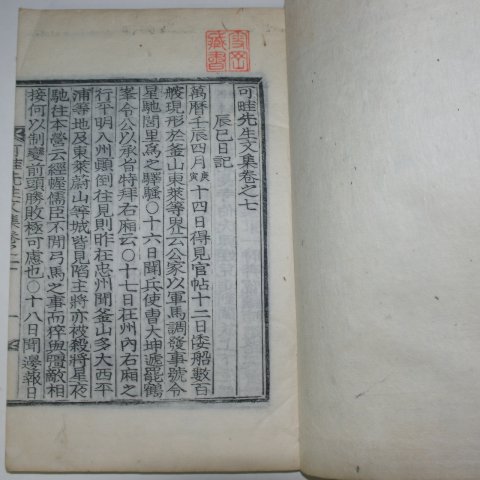 藏書
可畦先生文集卷之七
辰巳日記
萬曆壬辰四月庚寅十四日得見官帖十二日倭船數百
艘現形於釜山東萊等界云公家以軍馬調發事號令
星馳閭里爲之驛騷○十六日聞兵使曺大坤遞罷鶴
峯令公以承旨特拜右廂云○十七日在州內右廂之
行平明入州頭倒往見則昨在忠州聞釜山多大西平
浦等地及東萊蔚山等城皆見陷主將亦被殺將星夜
馳往本營云經幄儒臣不閑弓馬之事而猝與敵相
接何以制變前頭勝敗極可慮也○十八日聞邊報日
可畦先生文集卷之七